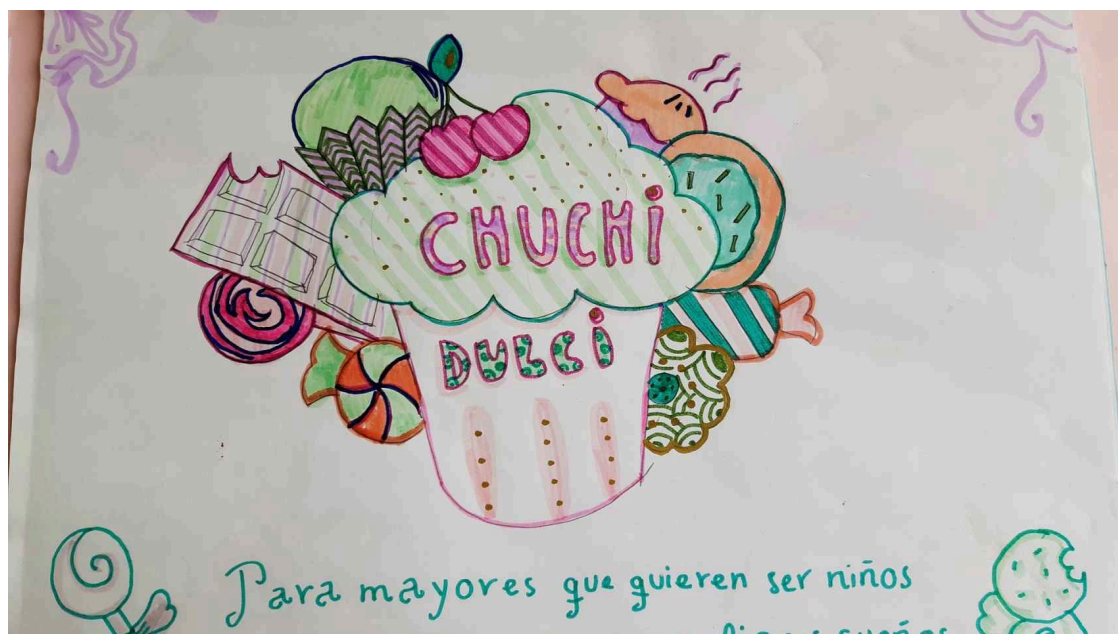 CHUCHi
DULCi
Para mayores que quieren ser niños
sueños